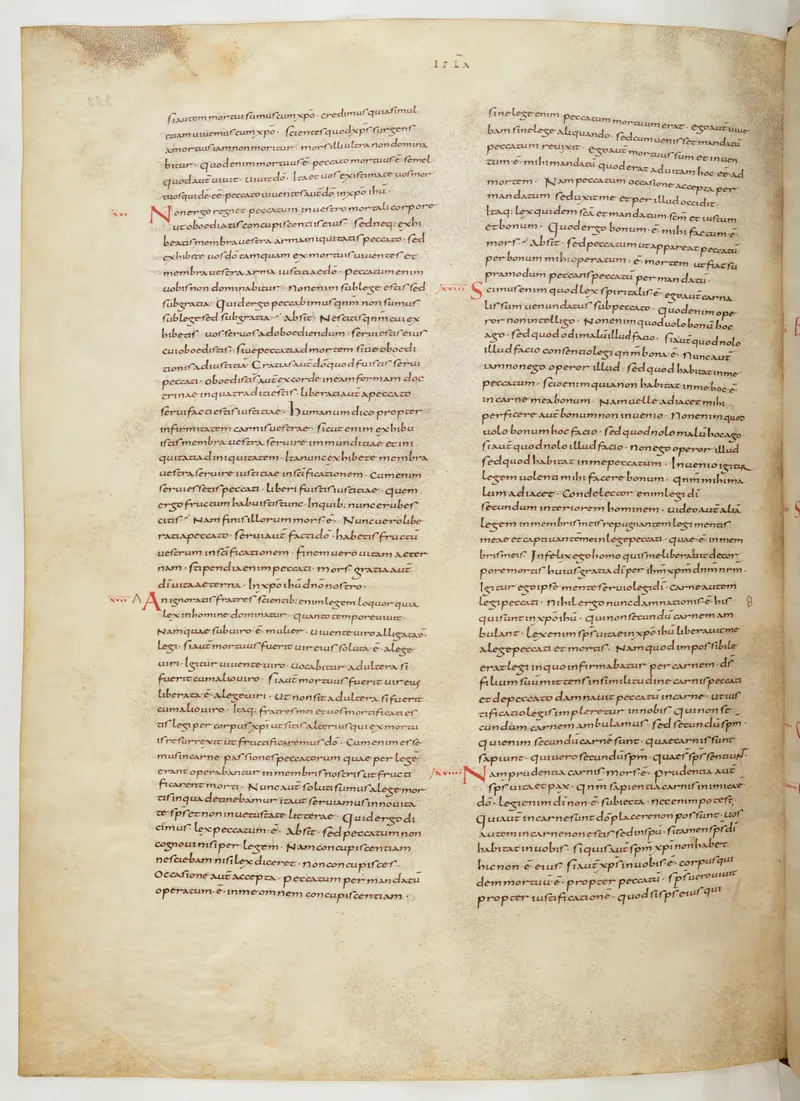 EPLA
si autem mortui sumus cum xp̄o · credimus quia simul
etiam uiuemus cum xp̄o · scientes quod xp̄s surgens
a mortuis iam non moritur · mors illi ultra non domina
bitur · Quod enim mortuus ē · peccato mortuus ē semel ·
quod aut̄ uiuit · uiuit dō · Ita et uos existimate uos mor
tuos quidē eē peccato uiuentes aut̄ dō in xp̄o ihū ·
xvi Non ergo regnet peccatum in uestro mortali corpore
ut oboediatis concupiscentiis eius · sed neq; exhi
beatis membra uestra arma iniquitatis peccato · sed
exhibete uos dō tamquam ex mortuis uiuentes et
membra uestra arma iustitiae dō · peccatum enim
uobis non dominabitur · non enim sub lege estis sed
sub gratia · Quid ergo peccabimus qnm̄ non sumus
sub lege sed sub gratia · Absit · Nescitis qnm̄ cui ex
hibetis uos seruos ad oboediendum · serui estis eius
cui oboeditis · siue peccati ad mortem siue oboedi
tionis ad iustitiā · Gratias aut̄ dō quod fuistis serui
peccati · oboedistis aut̄ ex corde in eam formam doc
trinae in qua traditi estis · liberati aut̄ a peccato
serui facti estis iustitiae · Humanum dico propter
infirmitatem carnis uestrae · sicut enim exhibu
istis membra uestra seruire inmunditiae et ini
quitati ad iniquitatem · Ita nunc exhibete membra
uestra seruire iustitiae in sc̄ificationem · Cum enim
serui essetis peccati · liberi fuistis iustitiae · quem
ergo fructum habuistis tunc · In quib; nunc erubes
citis · Nam finis illorum mors ē · Nunc uero libe
rati a peccato · serui aut̄ facti dō · habetis fructū
uestrum in sc̄ificationem · finem uero uitam aeter
nam · stipendia enim peccati · mors gratia aut̄
dī uita aeterna · In xp̄o ihū dn̄o nostro ·
xvii An ignoratis fratres scientib; enim legem loquor quia
lex in homine dominatur · quanto tempore uiuit ·
Nam quae sub uiro ē mulier · uiuente uiro alligata ē
legi · si aut̄ mortuus fuerit uir eius soluta ē a lege
uiri · Igitur uiuente uiro · uocabitur adultera si
fuerit cum alio uiro · si aut̄ mortuus fuerit uir eius
liberata ē a lege uiri · ut non sit adultera si fuerit
cum alio uiro · Itaq; fratres mei et uos mortificati es
tis legi per corpus xp̄i ut sitis alterius qui ex mortu
is resurrexit ut fructificaremus dō · Cum enim esse
mus in carne passiones peccatorum quae per legē
erant operabantur in membris nostris ut fructi
ficarent morti · Nunc aut̄ soluti sumus a lege mor
tis in qua detinebamur ita ut seruiamus in nouita
te sp̄s et non in uetustate litterae · Quid ergo di
cimus lex peccatum ē · Absit · sed peccatum non
cognoui nisi per legem · Nam concupiscentiam
nesciebam nisi lex diceret · non concupisces ·
Occasione aut̄ accepta · peccatum per mandatū
operatum ē in me omnem concupiscentiam ·
sine lege enim peccatum mortuum erat · ego aut̄ uiue
bam sine lege aliquando · sed cum uenisset mandatū
peccatum reuixit · ego aut̄ mortuus sum et inuen
tum ē mihi mandatū quod erat ad uitam hoc eē ad
mortem · Nam peccatum occasione accepta per
mandatum seduxit me et per illud occidit ·
Itaq; lex quidem sc̄a et mandatum sc̄m et iustum
et bonum · Quod ergo bonum ē mihi factum ē
mors · Absit · sed peccatum ut appareat peccatū
per bonum mihi operatum ē mortem ut fiat su
pra modum peccans peccatū per mandatū ·
xviii Scimus enim quod lex spiritalis ē · ego aut̄ carna
lis sum uenundatus sub peccato · Quod enim ope
ror non intelligo · Non enim quod uolo bonū hoc
ago · sed quod odi malū illud facio · si aut̄ quod nolo
illud facio consentio legi qnm̄ bona ē · Nunc aut̄
iam non ego operor illud · sed quod habitat in me
peccatum · scio enim quia non habitat in me hoc ē
in carne mea bonum · Nam uelle adiacet mihi
perficere aut̄ bonum non inuenio · Non enim quod
uolo bonum hoc facio · sed quod nolo malū hoc ago ·
si aut̄ quod nolo illud facio · non ego operor illud
sed quod habitat in me peccatum · Inuenio igitur
legem uolenti mihi facere bonum · qnm̄ mihi ma
lum adiacet · Condelector enim legi dī
secundum interiorem hominem · uideo aut̄ aliā
legem in membris meis repugnantem legi mentis
meae et captiuantem me in lege peccati · quae ē in mem
bris meis Infelix ego homo quis me liberabit de cor
pore mortis huius gratia dī per ihm̄ xp̄m dn̄m nrm̄ ·
Igitur ego ipse mente seruio legi dī · carne autem
legi peccati · Nihil ergo nunc damnationis ē his
qui sunt in xp̄o ihū · qui non secundū carnem am
bulant · Lex enim sp̄s uitae in xp̄o ihū liberauit me
a lege peccati et mortis · Nam quod impossibile
erat legi in quo infirmabatur per carnem · dīs
filium suū mittens in similitudine carnis peccati
et de peccato damnauit peccatū in carne · ut ius
tificatio legis impleretur in nobis qui non se
cundum carnem ambulamus sed secundū sp̄m ·
qui enim secundū carnē sunt · quae carnis sunt
sapiunt · qui uero secundū sp̄m · quae s̄t sp̄s sentiunt ·
xviiii Nam prudentia carnis mors ē · prudentia aut̄
sp̄s uita et pax · qnm̄ sapientia carnis inimica ē
dō · legi enim dī non ē subiecta · nec enim potest ·
Qui aut̄ in carne sunt dō placere non possunt · uos
autem in carne non estis sed in sp̄u · si tamen sp̄s dī
habitat in uobis · si quis aut̄ sp̄m xp̄i non habet
hic non ē eius · si aut̄ xp̄s in uobis ē corpus qui
dem mortuū ē propter peccatū · sp̄s uero uiuit
propter iustificationē · quod si sp̄s eius qui